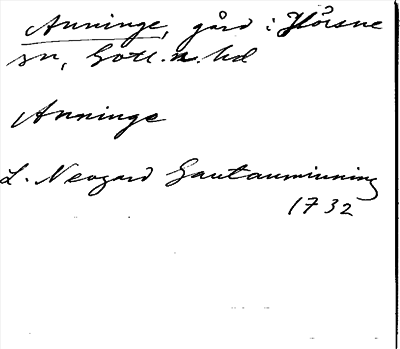 Anninge, gård i Hörsne
sn, Gotl. n. hd
Anninge
L. Neogard Gautauminning
1732